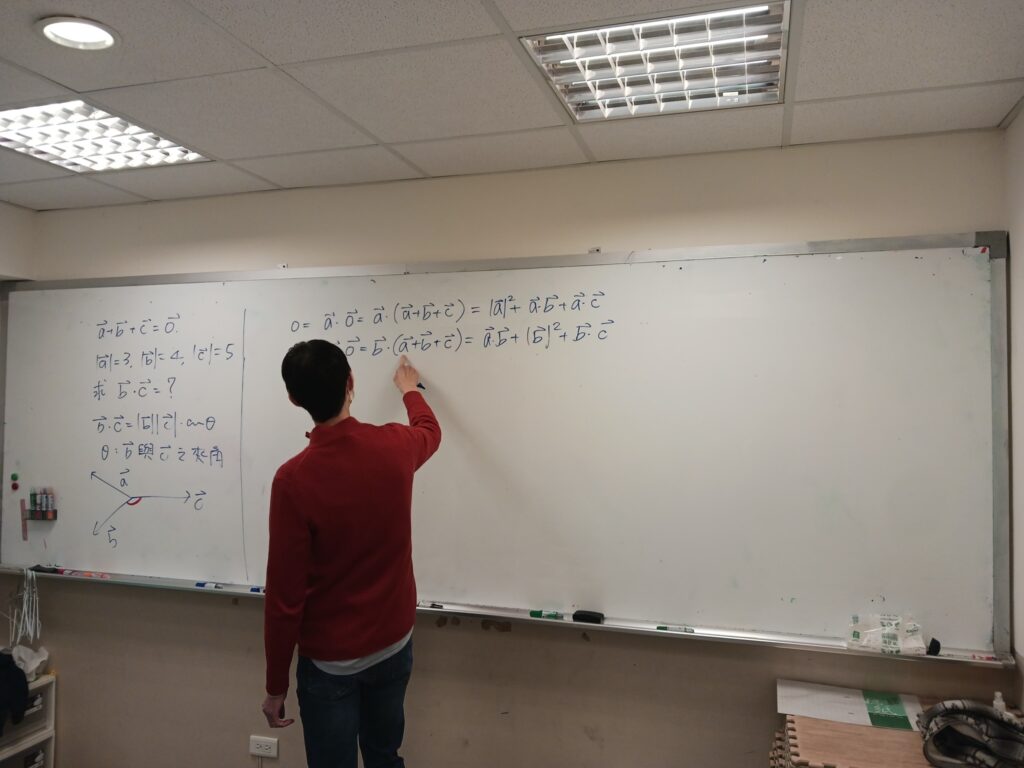 a⃗+b⃗+c⃗=0⃗.
|a⃗|=3, |b⃗|=4, |c⃗|=5
求 b⃗·c⃗=?
b⃗·c⃗=|b⃗||c⃗|·cosθ
θ:b⃗與c⃗之夾角
a⃗
c⃗
b⃗
0= a⃗·0⃗= a⃗·(a⃗+b⃗+c⃗)=|a⃗|²+ a⃗·b⃗+a⃗·c⃗
·0⃗= b⃗·(a⃗+b⃗+c⃗)= a⃗·b⃗+|b⃗|²+b⃗·c⃗